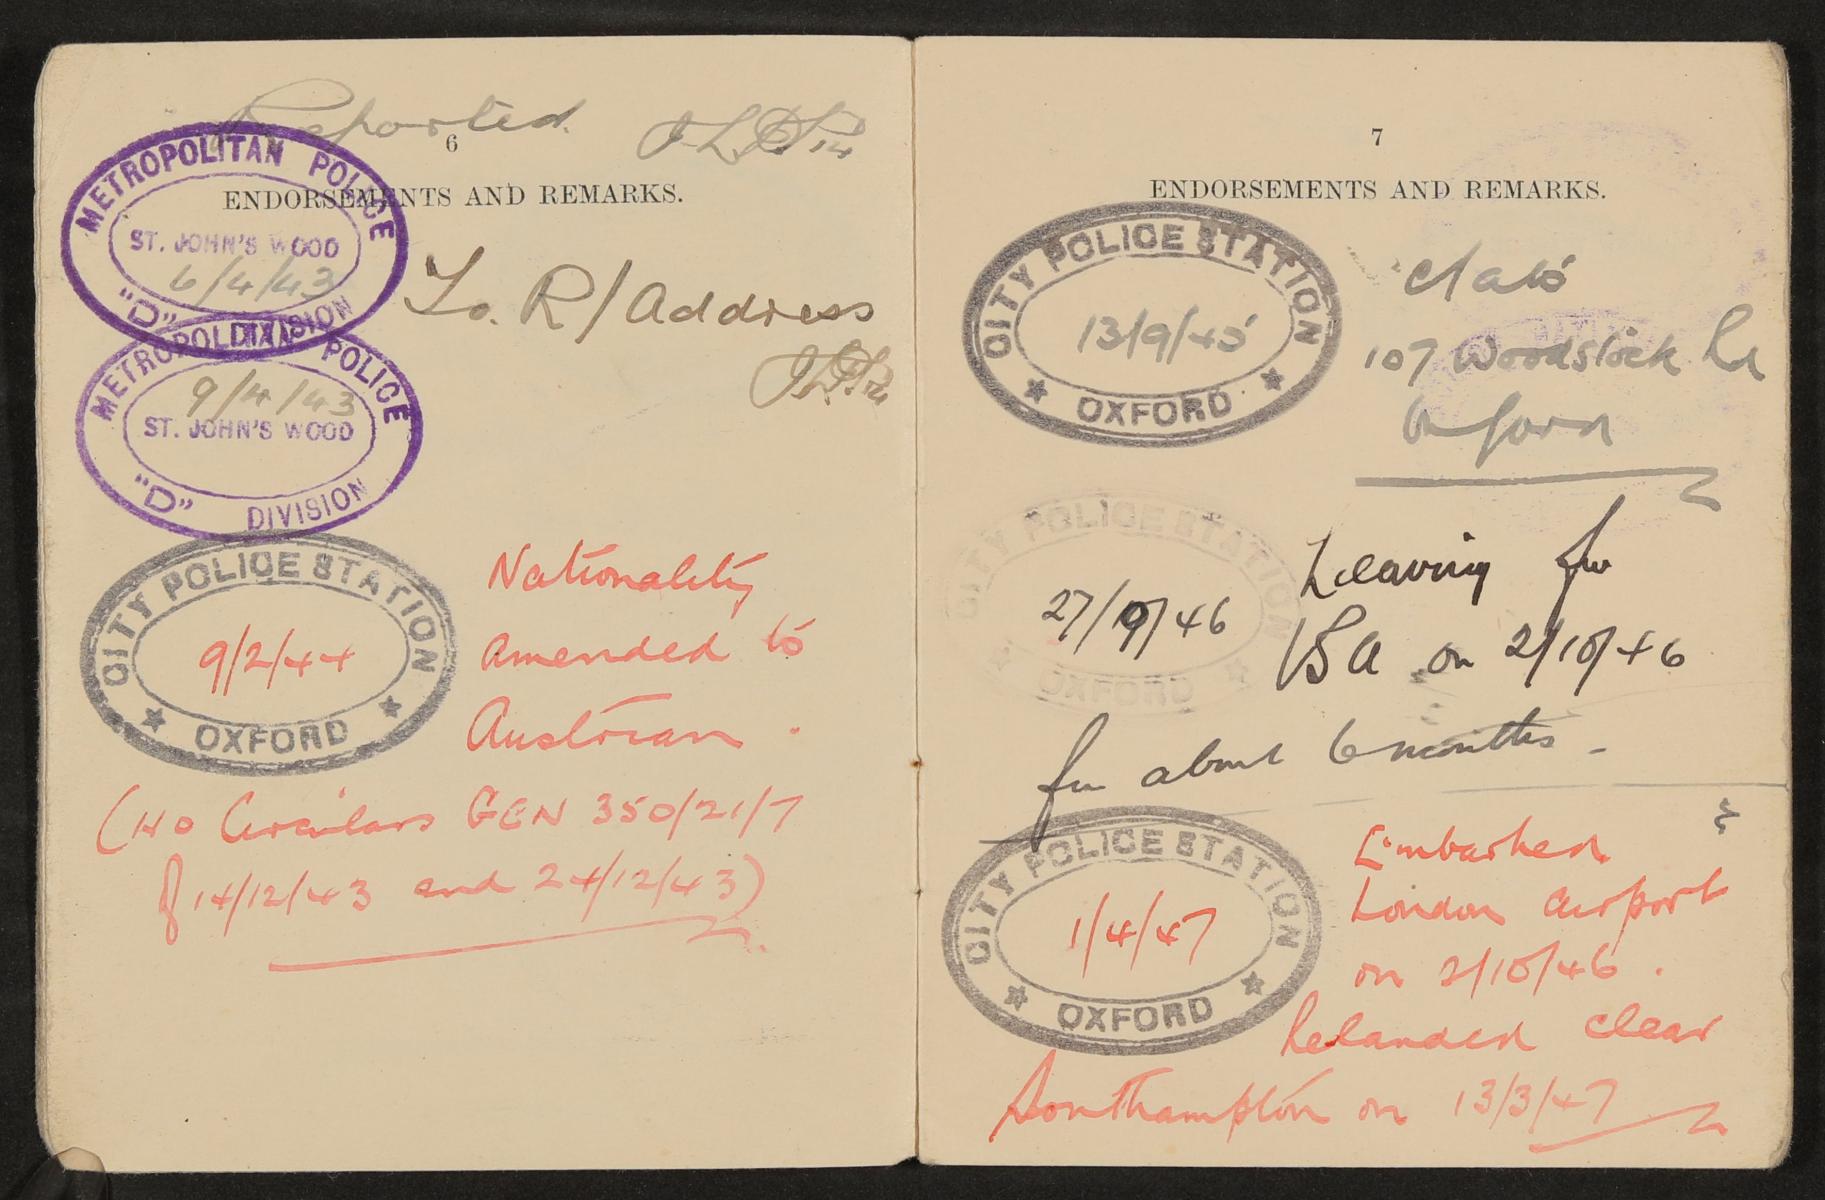 Reported.
6
ENDORSEMENTS AND REMARKS.
METROPOLITAN POLICE
ST. JOHN'S WOOD
6/4/43
"D" DIVISION
To. R/Address
METROPOLITAN POLICE
9/4/43
ST. JOHN'S WOOD
"D" DIVISION
CITY POLICE STATION
9/2/44
OXFORD
Nationality
amended to
Austrian.
(HO Circulars GEN 350/21/7
of 14/12/43 and 24/12/43)
7
ENDORSEMENTS AND REMARKS.
CITY POLICE STATION
13/9/45
OXFORD
C/a to
107 Woodstock Rd
Oxford
CITY POLICE STATION
27/9/46
OXFORD
Leaving for
USA on 2/10/46
for about 6 months -
CITY POLICE STATION
1/4/47
OXFORD
Embarked
London Airport
on 2/10/46.
Relanded clear
Southampton on 13/3/47